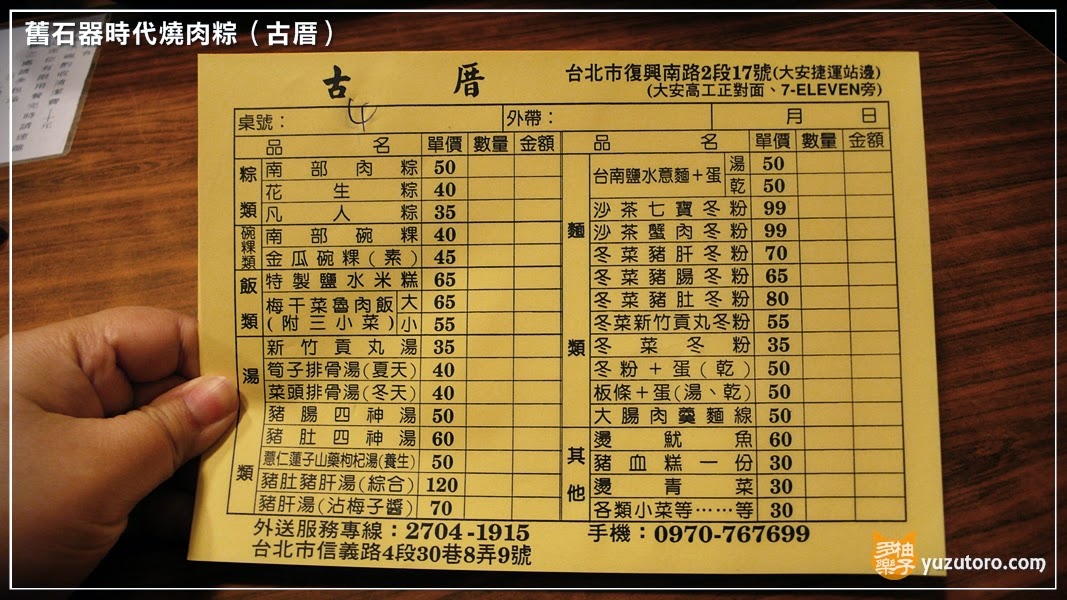 舊石器時代燒肉粽（古厝）
古厝
台北市復興南路2段17號(大安捷運站邊)
(大安高工正對面、7-ELEVEN旁)
桌號： 4 外帶： 月 日
品名 單價 數量 金額
粽類
南部肉粽 50
花生粽 40
凡人粽 35
碗粿類
南部碗粿 40
金瓜碗粿(素) 45
飯類
特製鹽水米糕 65
梅干菜魯肉飯(附三小菜) 大 65
小 55
湯類
新竹貢丸湯 35
筍子排骨湯(夏天) 40
菜頭排骨湯(冬天) 40
豬腸四神湯 50
豬肚四神湯 60
薏仁蓮子山藥枸杞湯(養生) 50
豬肚豬肝湯(綜合) 120
豬肝湯(沾梅子醬) 70
品名 單價 數量 金額
麵類
台南鹽水意麵＋蛋 湯 50
乾 50
沙茶七寶冬粉 99
沙茶蟹肉冬粉 99
冬菜豬肝冬粉 70
冬菜豬腸冬粉 65
冬菜豬肚冬粉 80
冬菜新竹貢丸冬粉 55
冬菜冬粉 35
冬粉＋蛋(乾) 50
板條＋蛋(湯、乾) 50
大腸肉羹麵線 50
其他
燙魷魚 60
豬血糕一份 30
燙青菜 30
各類小菜等……等 30
外送服務專線：2704-1915 手機：0970-767699
台北市信義路4段30巷8弄9號
柚子多樂 yuzutoro.com